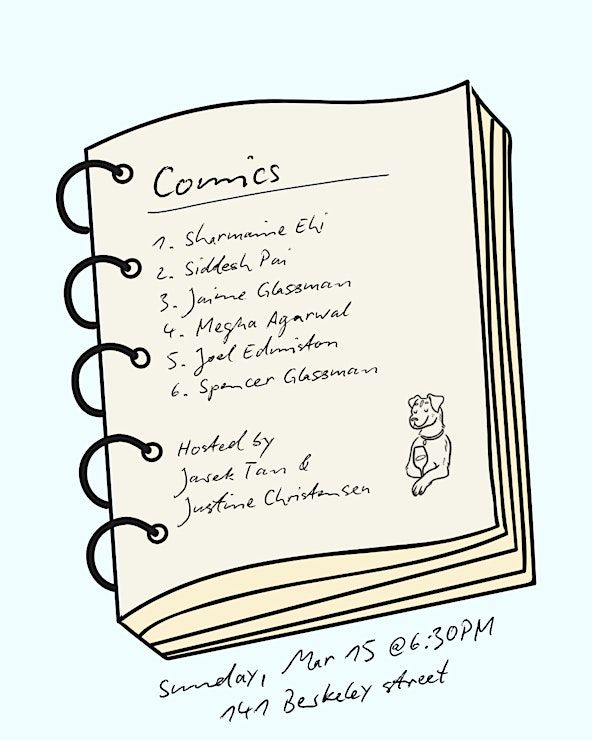 Comics
1. Sharmaine Eki
2. Siddesh Pai
3. Jaime Glassman
4. Megha Agarwal
5. Joel Edmiston
6. Spencer Glassman
Hosted by
Jarek Tan &
Justine Christensen
Sunday, Mar 15 @6:30PM
141 Berkeley street